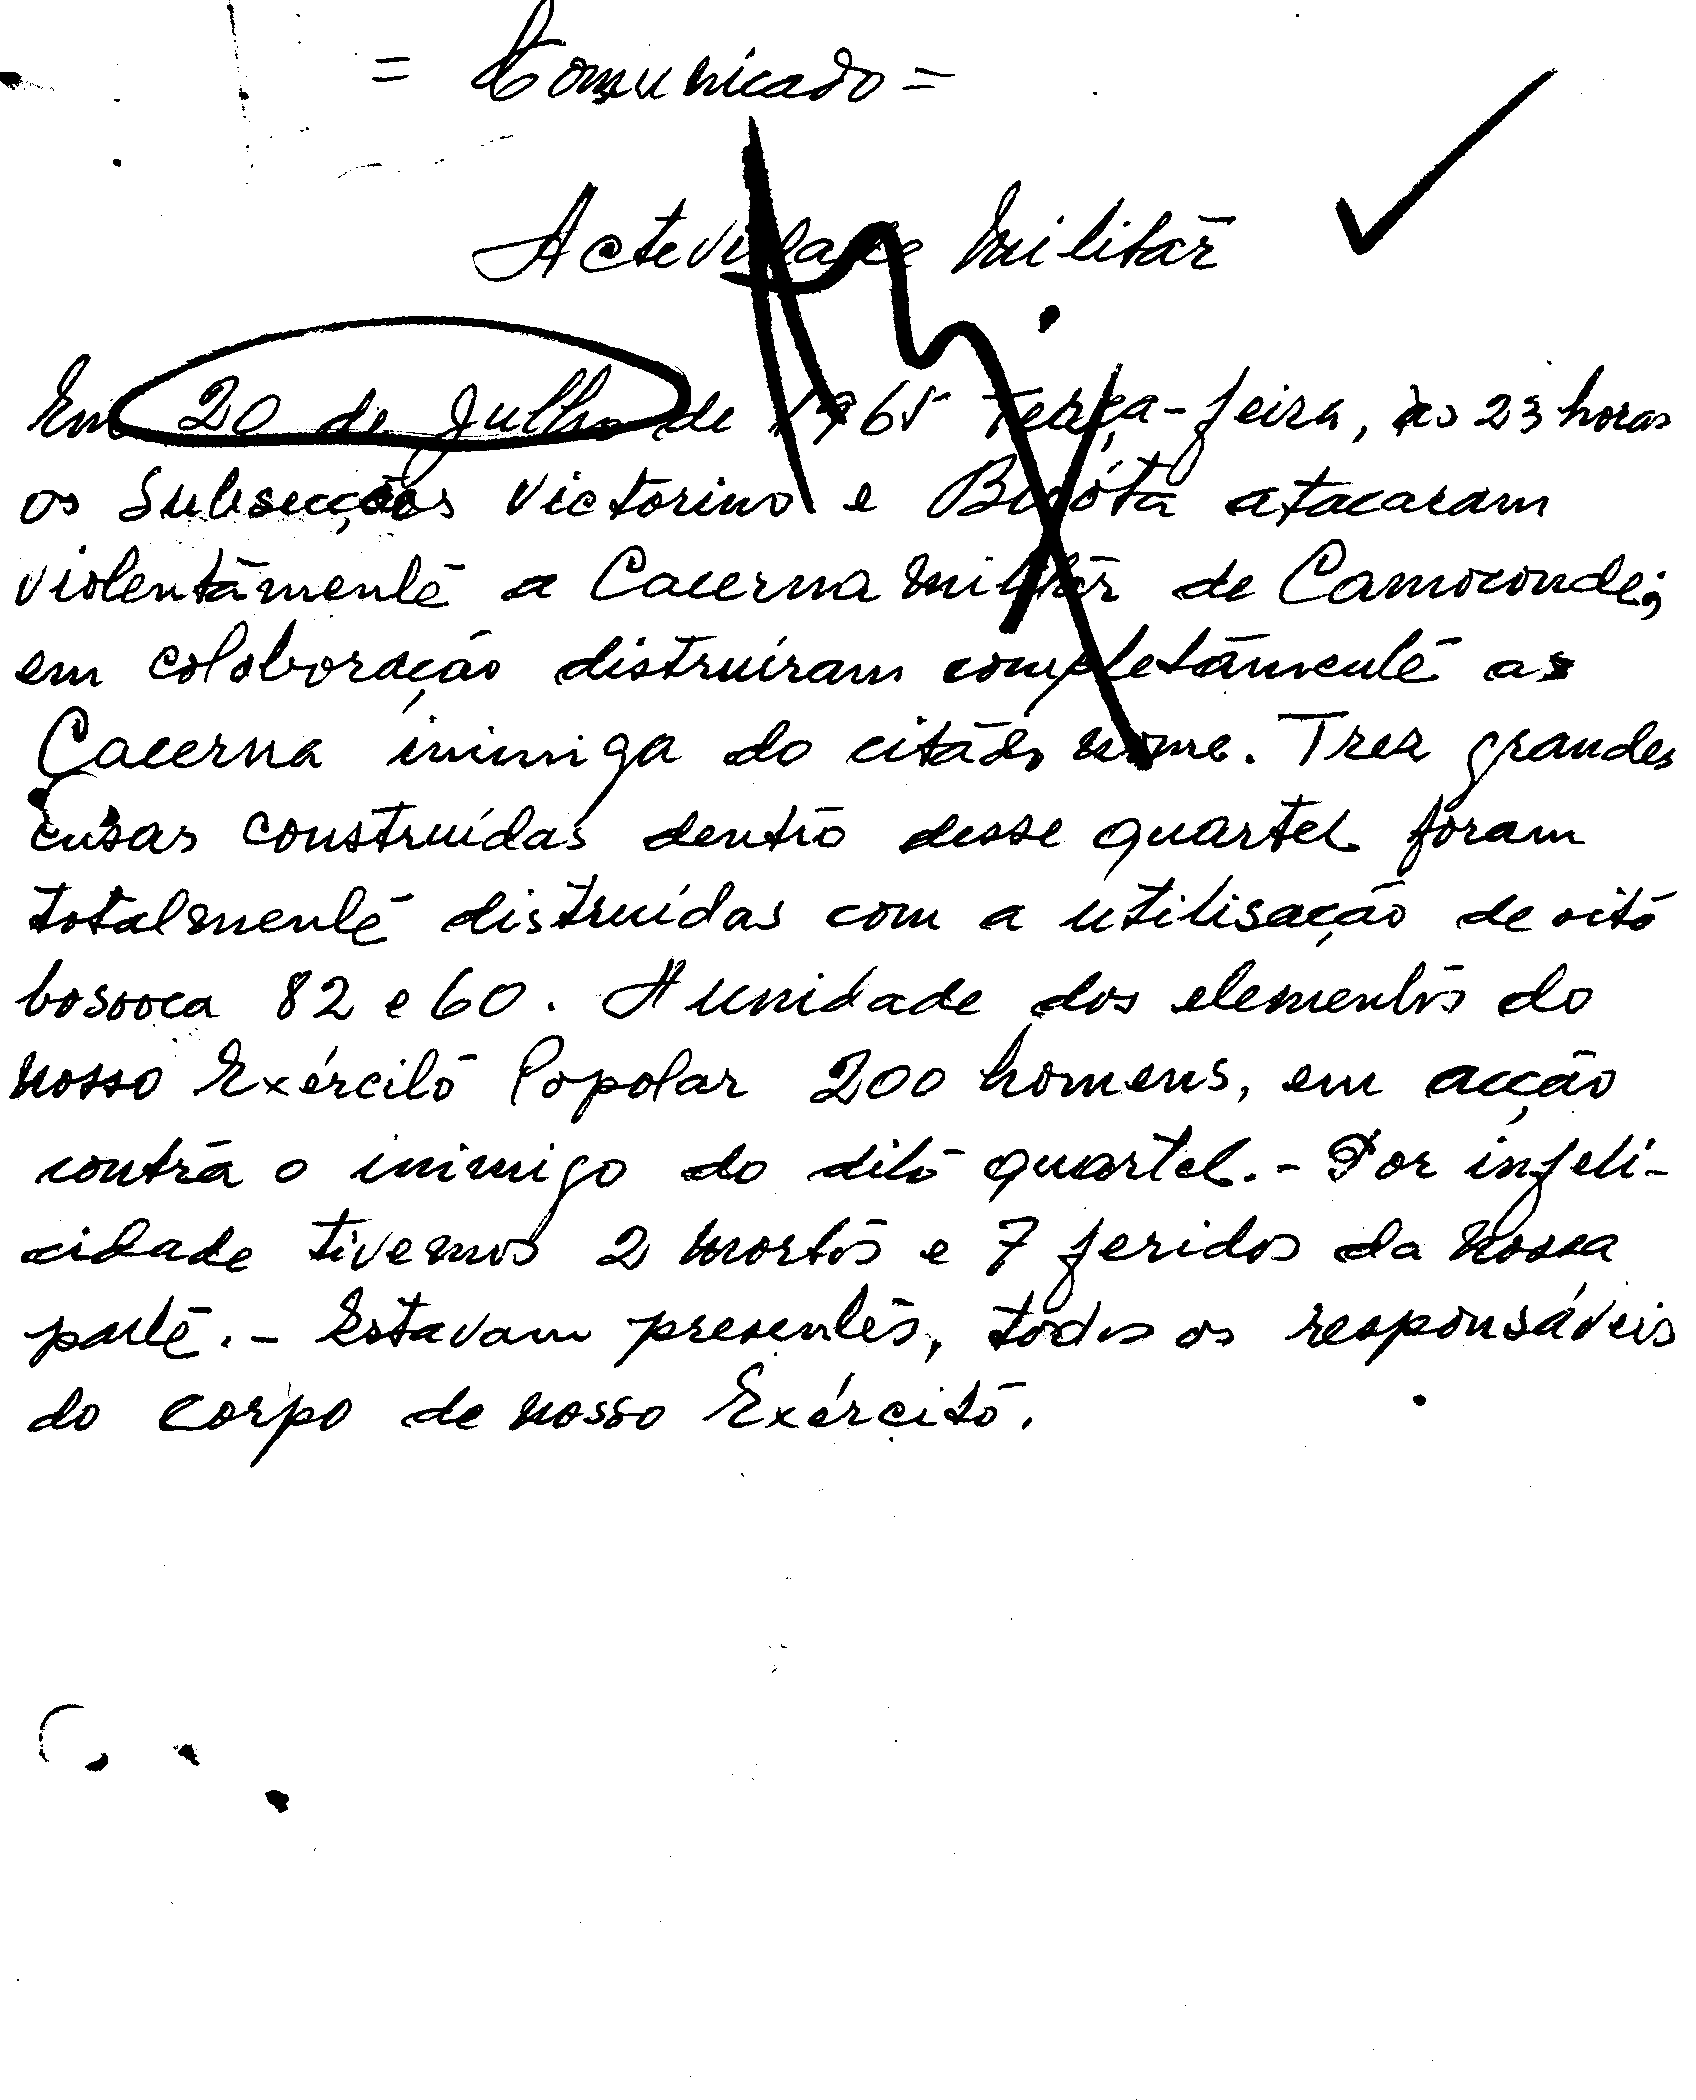 = Comunicado =
Actevidade Militar
Em 20 de Julho de 1965 Terça-feira, às 23 horas
os Subsecções Victorino e Bicóta atacaram
violentamente a Cacerna militar de Camoconde;
em coloboração distruíram completamente as
Cacerna inimiga do citado nome. Trez grandes
cusas construídas dentro desse quartel foram
totalmente distruídas com a utilisação de oito
bosooca 82 e 60. A unidade dos elementos do
nosso Exército Popolar 200 homens, em acção
contra o inimigo do dito quartel. - Por infeli-
cidade tivemos 2 mortos e 7 feridos da nossa
parte. - Estavam presentes, todos os responsáveis
do corpo de nosso Exército.